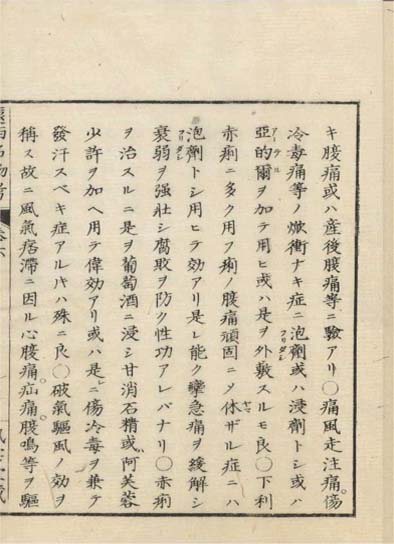 キ腹痛或ハ産後腹痛等ニ驗アリ〇痛風走注痛。傷
冷毒痛等ノ焮衝ナキ症ニ泡劑或ハ浸劑トシ或ハ
亞的爾ヲ加テ用ヒ或ハ是ヲ外敷スルモ良〇下利
赤痢ニ多ク用フ痢ノ腹痛頑固ニメ休ザル症ニハ
泡劑トシ用ヒテ効アリ是レ能ク攣急痛ヲ緩解シ
衰弱ヲ強壮シ腐敗ヲ防ク性功アレバナリ〇赤痢
ヲ治スルニ是ヲ葡萄酒ニ浸シ甘消石精或阿芙蓉
少許ヲ加ヘ用テ偉効アリ或ハ是ニ傷冷毒ヲ兼テ
發汗スベキ症アルキハ殊ニ良〇破氣驅風ノ効ヲ
稱ス故ニ風氣痞滯ニ因ル心腹痛。疝痛。腹鳴等ヲ驅